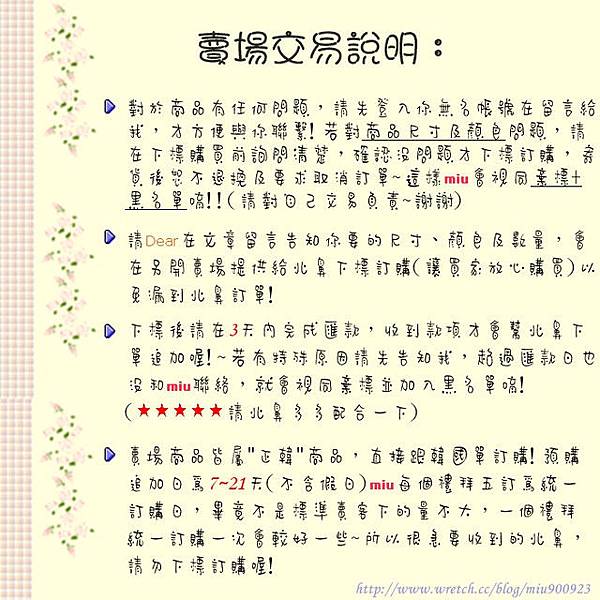 賣場交易說明：
對於商品有任何問題，請先登入你無名帳號在留言給
我，才方便與你聯繫!若對商品尺寸及顏色問題，請
在下標購買前詢問清楚，確認沒問題才下標訂購，寄
貨後恕不退換及要求取消訂單~這樣miu會視同棄標+
黑名單唷!!(請對自己交易負責~謝謝)
請Dear在文章留言告知你要的尺寸、顏色及數量，會
在另開賣場提供給北鼻下標訂購(讓買家放心購買)以
免漏到北鼻訂單!
下標後請在3天內完成匯款，收到款項才會幫北鼻下
單追加喔!~若有特殊原因請先告知我，超過匯款日也
沒和miu聯絡，就會視同棄標並加入黑名單唷!
(★★★★★請北鼻多多配合一下)
賣場商品皆屬"正韓"商品，直接跟韓國單訂購!預購
追加日為7~21天(不含假日)miu每個禮拜五訂為統一
訂購日，畢竟不是標準賣客下的量不大，一個禮拜
統一訂購一次會較好一些~所以很急要收到的北鼻，
請勿下標訂購喔!
http://www.wretch.cc/blog/miu900923